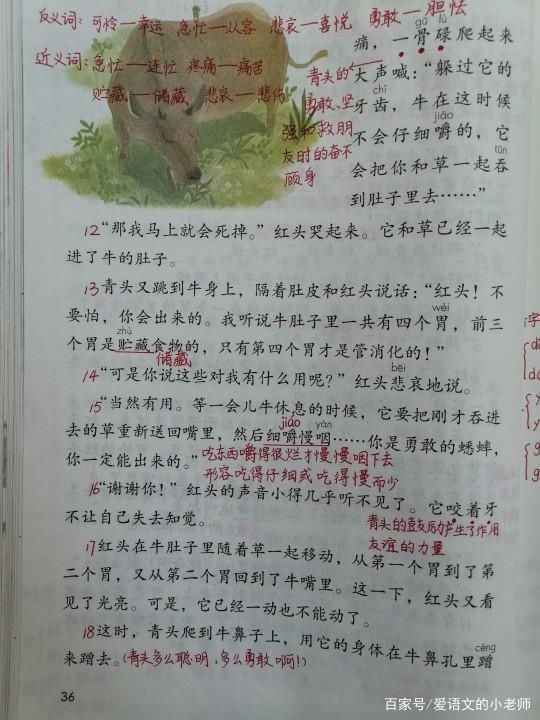 反义词：可怜—幸运 急忙—从容 悲哀—喜悦 勇敢—胆怯
近义词：急忙—连忙 疼痛—痛苦
贮藏—储藏 悲哀—悲伤
gū lù
痛，一骨碌爬起来
青头的
大声喊："躲过它的
勇敢、坚
chǐ
牙齿，牛在这时候
强和救朋
jiáo
不会仔细嚼的，它
友时的奋不
tūn
会把你和草一起吞
顾身
到肚子里去……"
12"那我马上就会死掉。"红头哭起来。它和草已经一起
进了牛的肚子。
13青头又跳到牛身上，隔着肚皮和红头说话："红头！不
wèi
要怕，你会出来的。我听说牛肚子里一共有四个胃，前三
zhù
个胃是贮藏食物的，只有第四个胃才是管消化的！"
储藏
bēi
14"可是你说这些对我有什么用呢？"红头悲哀地说。
15"当然有用。等一会儿牛休息的时候，它要把刚才吞进
jiáo yàn
去的草重新送回嘴里，然后细嚼慢咽……你是勇敢的蟋蟀，
吃东西嚼得很烂才慢慢咽下去
你一定能出来的。"
形容吃得仔细或吃得慢而少
16"谢谢你！"红头的声音小得几乎听不见了。它咬着牙
不让自己失去知觉。
青头的鼓励产生了作用
友谊的力量
17红头在牛肚子里随着草一起移动，从第一个胃到了第
二个胃，又从第二个胃回到了牛嘴里。这一下，红头又看
见了光亮。可是，它已经一动也不能动了。
18这时，青头爬到牛鼻子上，用它的身体在牛鼻孔里蹭
cèng
来蹭去。(青头多么聪明，多么勇敢啊！)
36
百家号/爱语文的小老师